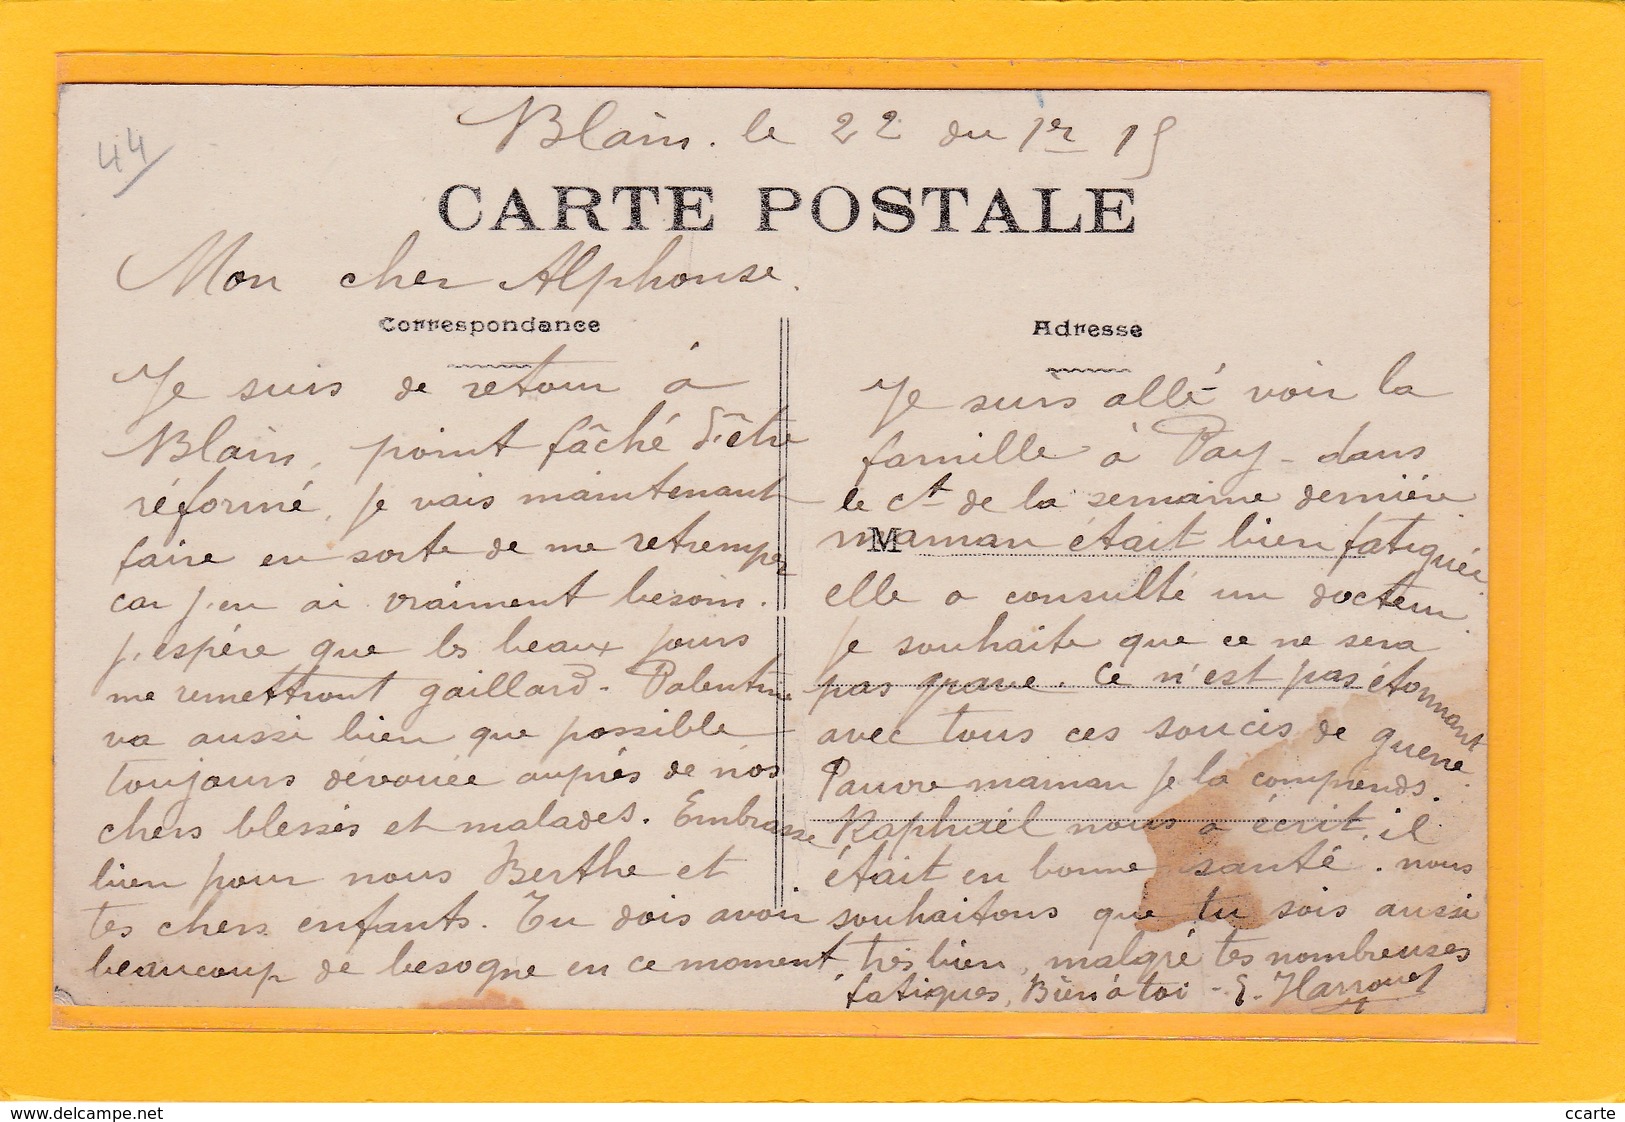 Blain. le 22 du 1er 15
44
CARTE POSTALE
Mon cher Alphonse.
Correspondance
Je suis de retour à
Blain, point fâché d'être
réformé, je vais maintenant
faire en sorte de me retremper
car j'en ai vraiment besoin.
j'espère que les beaux jours
me remettront gaillard. Valentine
va aussi bien que possible
toujours dévouée auprès de nos
chers blessés et malades. Embrasse
bien pour nous Berthe et
tes chers enfants. Tu dois avoir
beaucoup de besogne en ce moment
Adresse
Je suis allé voir la
famille à Vay - dans
le ct de la semaine dernière
M
maman était bien fatiguée
elle a consulté un docteur
je souhaite que ce ne sera
pas grave. Ce n'est pas étonnant
avec tous ces soucis de guerre
Pauvre maman je la comprends.
Raphaël nous a écrit, il
était en bonne santé. nous
souhaitons que tu sois aussi
très bien, malgré tes nombreuses
fatigues, Bien à toi - E. Harrouet
www.delcampe.net
ccarte